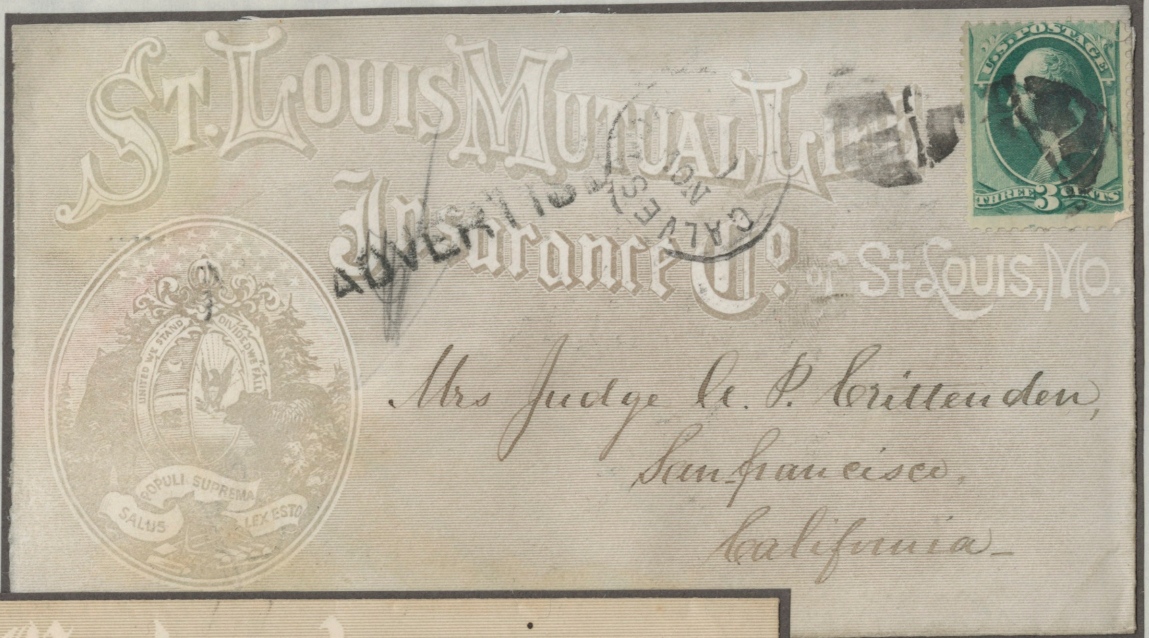 ST. LOUIS MUTUAL LIFE
Insurance Co. of St Louis, Mo.
U.S. POSTAGE
THREE 3 CENTS
GALVES
NOV
ADVERTISE
UNITED WE STAND DIVIDED WE FALL
SALUS POPULI SUPREMA LEX ESTO
Mrs Judge A. P. Crittenden,
San francisco,
California